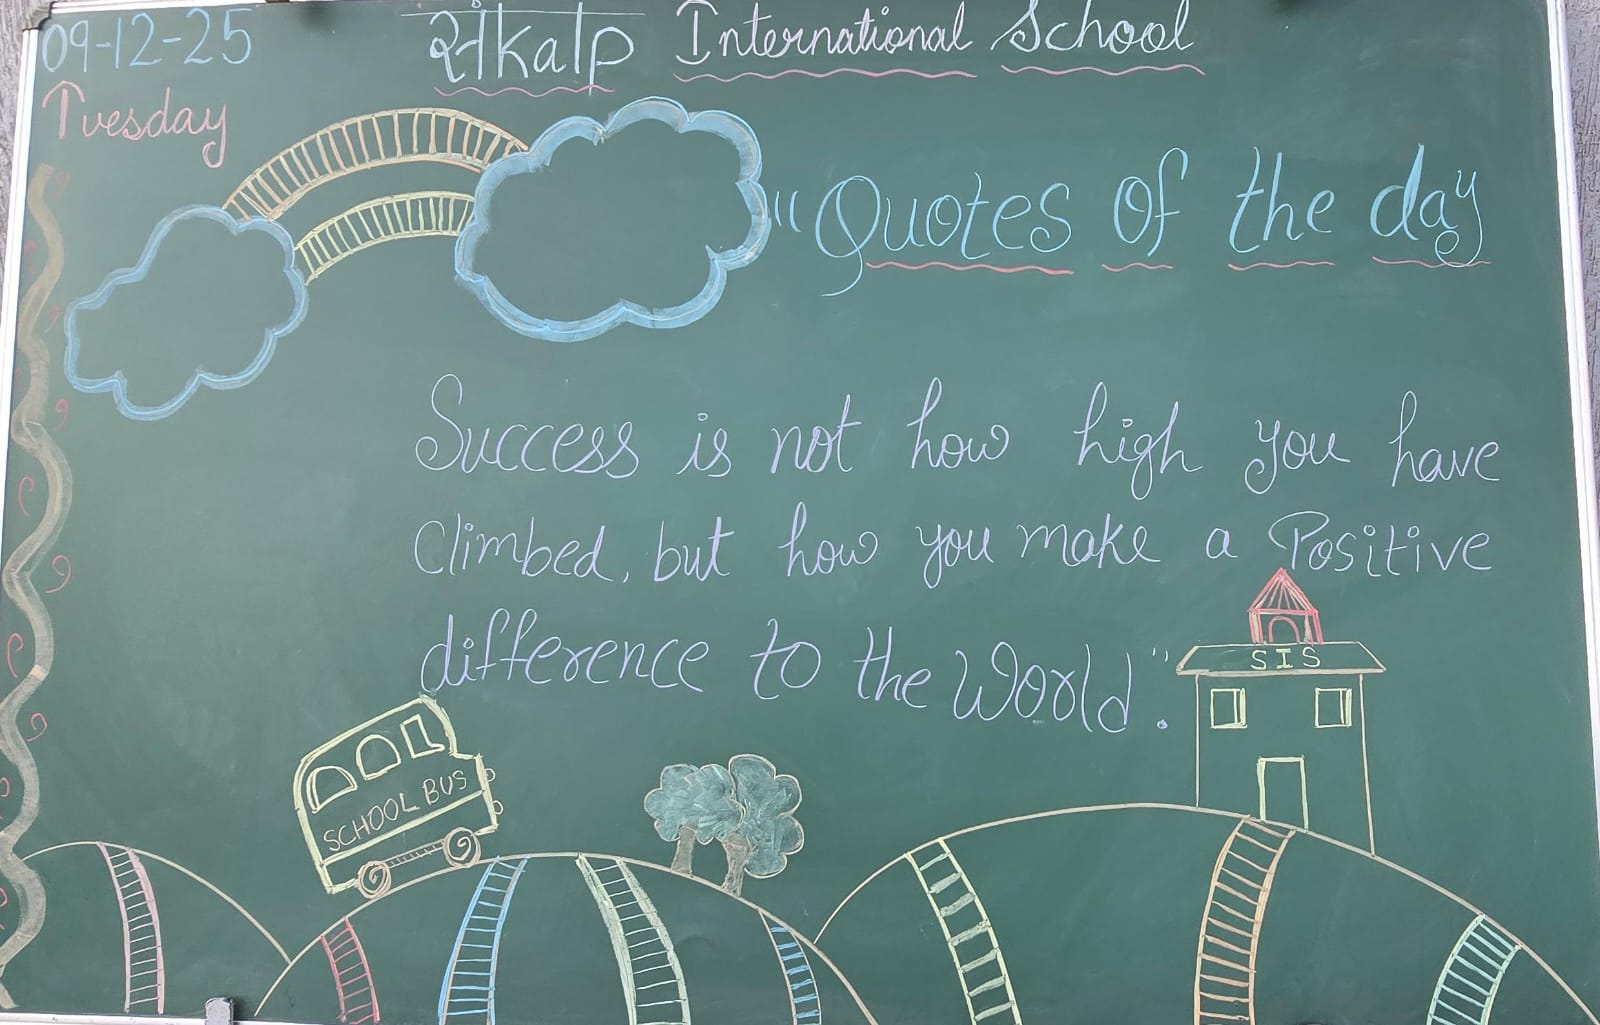 09-12-25
संkalp International School
Tuesday
"Quotes of the day
Success is not how high you have
climbed, but how you make a Positive
difference to the World".
SIS
SCHOOL BUS